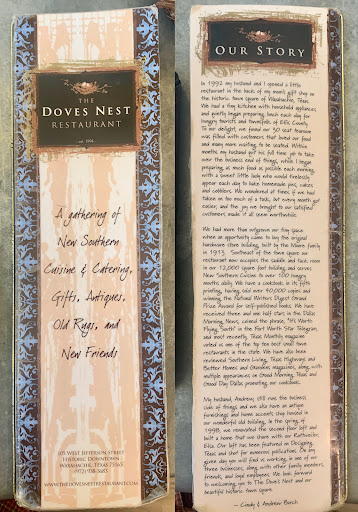 THE
DOVES NEST
RESTAURANT
A gathering of
New Southern
Cuisine & Catering,
Gifts, Antiques,
Old Rugs, and
New Friends
105 WEST JEFFERSON STREET
HISTORIC DOWNTOWN
WAXAHACHIE, TEXAS 75165
(972) 938-3683
WWW.THEDOVESNESTRESTAURANT.COM
OUR STORY
In 1992 my husband and I opened a little
restaurant in the back of my mom's gift shop on
the historic town square of Waxahachie, Texas.
We had a tiny kitchen with household appliances
and quietly began preparing lunch each day for
hungry tourists and townsfolk of Ellis County.
To our delight, we found our 30 seat tearoom
was filled with customers that loved our food
and many more waiting to be seated. Within
months, my husband quit his full time job to take
over the business end of things, while I began
preparing as much food as possible each morning
with a sweet little lady who would tirelessly
appear each day to make homemade pies, cakes
and cobblers. We wondered at times if we had
taken on too much of a task, but every month got
easier, and the joy we brought to our satisfied
customers made it all seem worthwhile.
We had more than outgrown our tiny space
when an opportunity came to buy the original
hardware store building, built by the Moore family
in 1913. Southeast of the town square our
restaurant now occupies the saddle and tack room
in our 12,000 square foot building and serves
New Southern Cuisine to over 100 hungry
mouths daily. We have a cookbook in its fifth
printing, having sold over 40,000 copies and
winning the National Writers Digest Grand
Prize Award for self-published books. We have
received three and one half stars in the Dallas
Morning News, coined the phrase, "It's Worth
Flying South" in the Fort Worth Star Telegram,
and most recently, Texas Monthly magazine
voted us one of the top ten best small town
restaurants in the state. We have also been
reviewed Southern Living, Texas Highways and
Better Homes and Gardens magazines, along with
multiple appearances on Good Morning Texas and
Good Day Dallas promoting our cookbook.
My husband, Andrew, still runs the business
side of things and we also have an antique
furnishings and home accents shop housed in
our wonderful old building. In the spring of
1998, we renovated the second floor loft and
built a home that we share with our Rottweiler,
Ella. Our loft has been featured on Designing
Texas and shot for numerous publications. On any
given day you will find us working in one of our
three businesses, along with other family members,
friends, and loyal employees. We look forward
to welcoming you to The Dove's Nest and our
beautiful historic town square.
~ Cindy & Andrew Burch